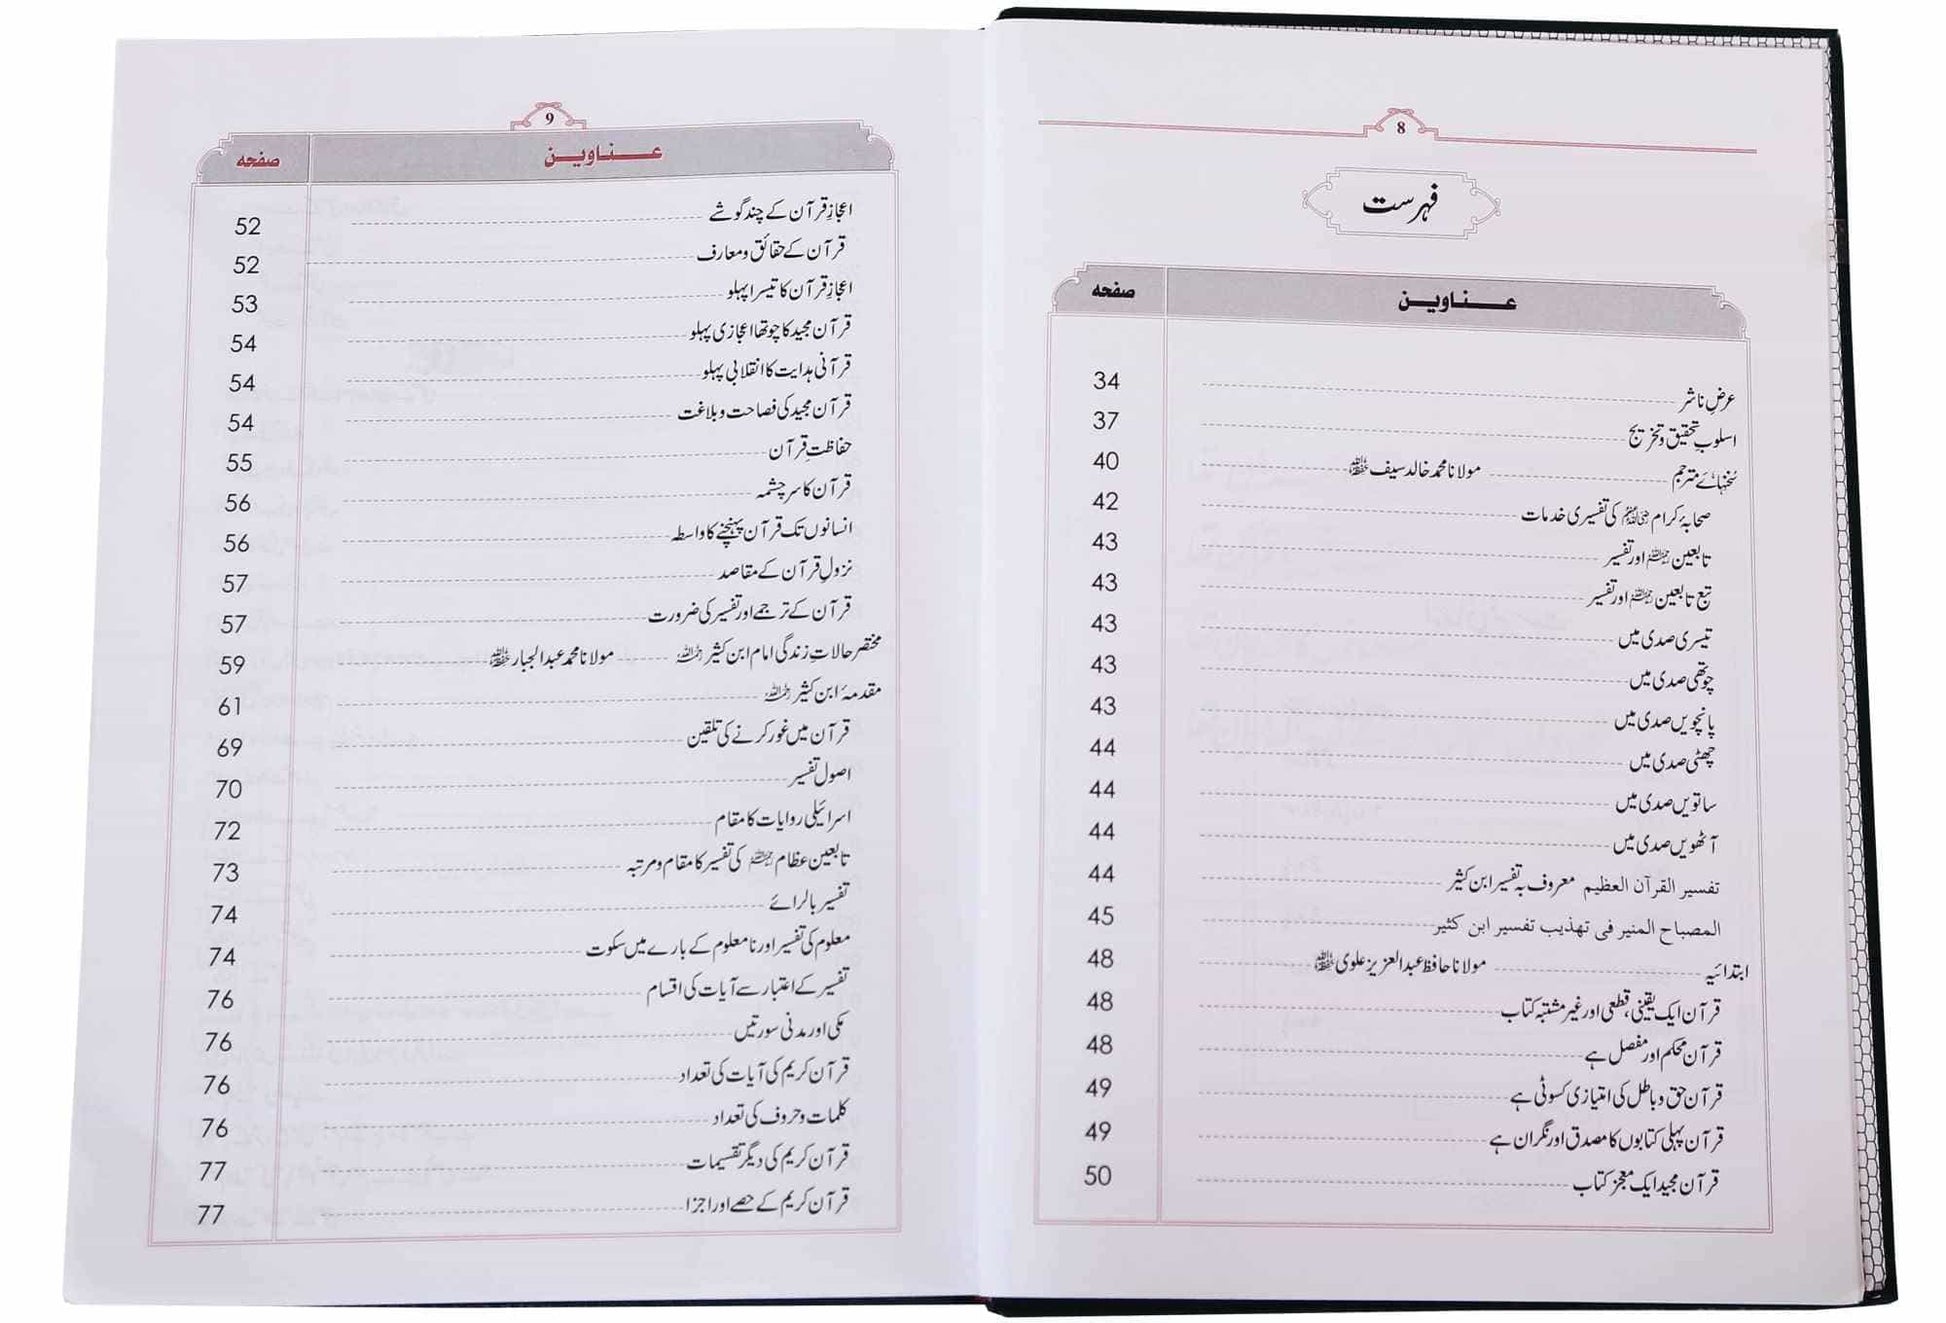 8
فہرست
عناوین صفحہ
عرضِ ناشر 34
اسلوبِ تحقیق و تخریج 37
سُخنہائے مترجم مولانا محمد خالد سیف ﷾ 40
صحابۂ کرام ﷢ کی تفسیری خدمات 42
تابعین ﷭ اور تفسیر 43
تبع تابعین ﷭ اور تفسیر 43
تیسری صدی میں 43
چوتھی صدی میں 43
پانچویں صدی میں 43
چھٹی صدی میں 44
ساتویں صدی میں 44
آٹھویں صدی میں 44
تفسیر القرآن العظیم معروف بہ تفسیر ابن کثیر 44
المصباح المنیر فی تهذیب تفسیر ابن کثیر 45
ابتدائیہ مولانا حافظ عبدالعزیز علوی ﷾ 48
قرآن ایک یقینی، قطعی اور غیر مشتبہ کتاب 48
قرآن محکم اور مفصل ہے 48
قرآن حق و باطل کی امتیازی کسوٹی ہے 49
قرآن پہلی کتابوں کا مصدق اور نگران ہے 49
قرآن مجید ایک معجز کتاب 50
9
عناوین صفحہ
اعجازِ قرآن کے چند گوشے 52
قرآن کے حقائق و معارف 52
اعجازِ قرآن کا تیسرا پہلو 53
قرآن مجید کا چوتھا اعجازی پہلو 54
قرآنی ہدایت کا انقلابی پہلو 54
قرآن مجید کی فصاحت و بلاغت 54
حفاظتِ قرآن 55
قرآن کا سرچشمہ 56
انسانوں تک قرآن پہنچنے کا واسطہ 56
نزولِ قرآن کے مقاصد 57
قرآن کے ترجمے اور تفسیر کی ضرورت 57
مختصر حالاتِ زندگی امام ابن کثیر ﷫ مولانا محمد عبدالجبار ﷾ 59
مقدمۂ ابن کثیر ﷫ 61
قرآن میں غور کرنے کی تلقین 69
اصول تفسیر 70
اسرائیلی روایات کا مقام 72
تابعین عظام ﷭ کی تفسیر کا مقام و مرتبہ 73
تفسیر بالرائے 74
معلوم کی تفسیر اور نامعلوم کے بارے میں سکوت 74
تفسیر کے اعتبار سے آیات کی اقسام 76
مکی اور مدنی سورتیں 76
قرآن کریم کی آیات کی تعداد 76
کلمات و حروف کی تعداد 76
قرآن کریم کی دیگر تقسیمات 77
قرآن کریم کے حصے اور اجزا 77